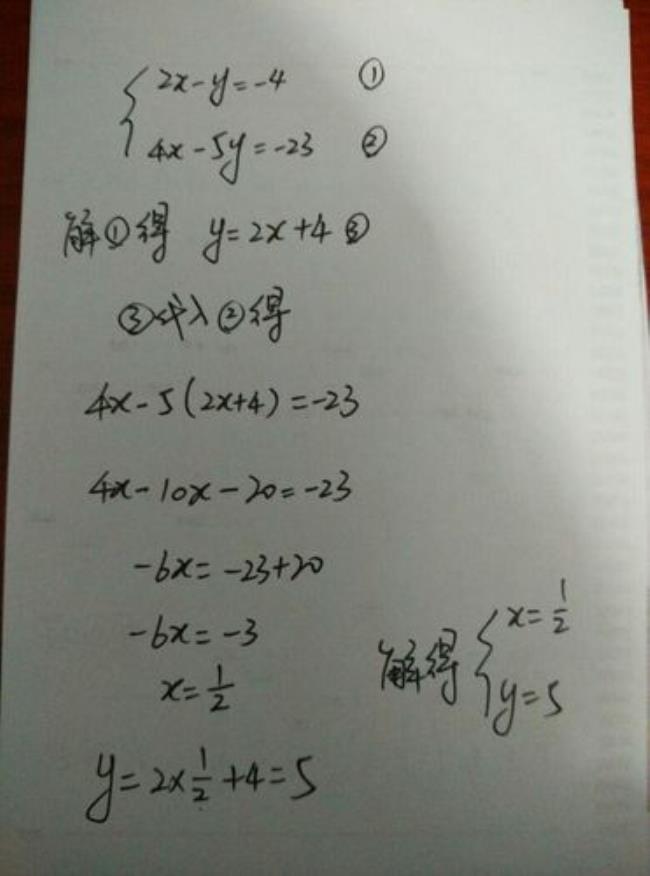 2x-y=-4 ①
4x-5y=-23 ②
解①得 y=2x+4 ③
③代入②得
4x-5(2x+4)=-23
4x-10x-20=-23
-6x=-23+20
-6x=-3
x=1/2
y=2×1/2+4=5
解得 { x=1/2
y=5